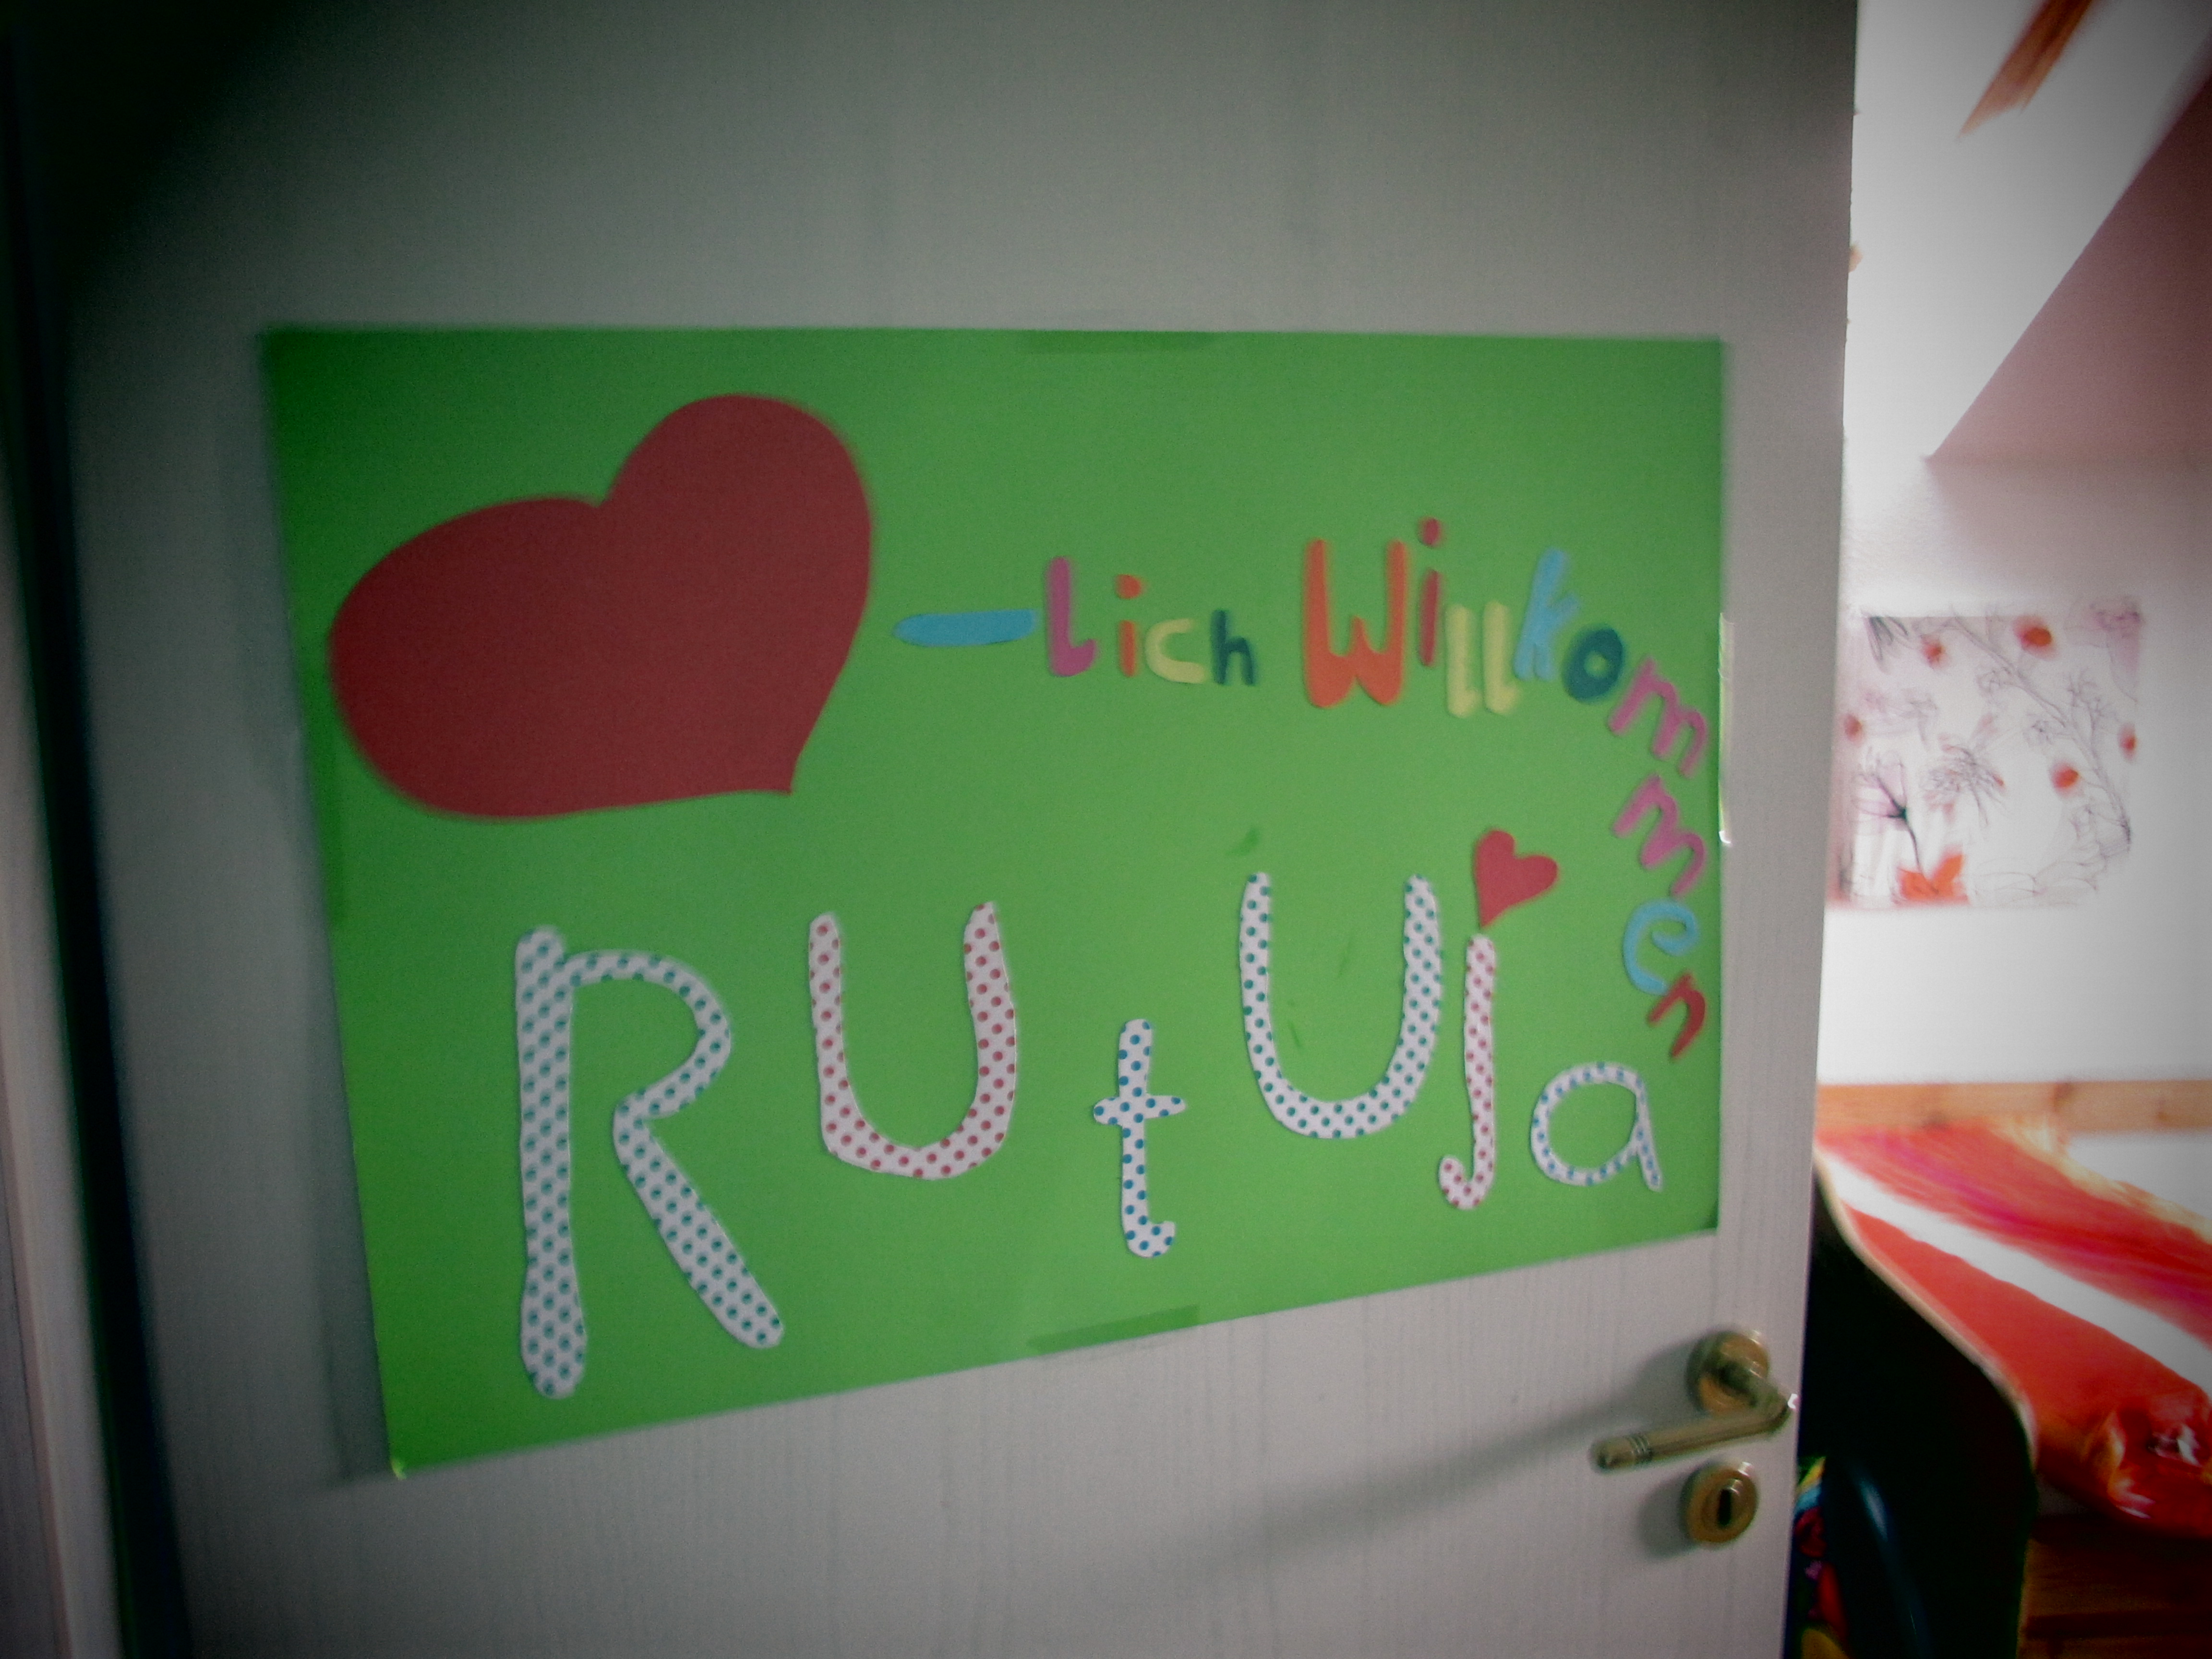 -lich Willkommen
RUtUja